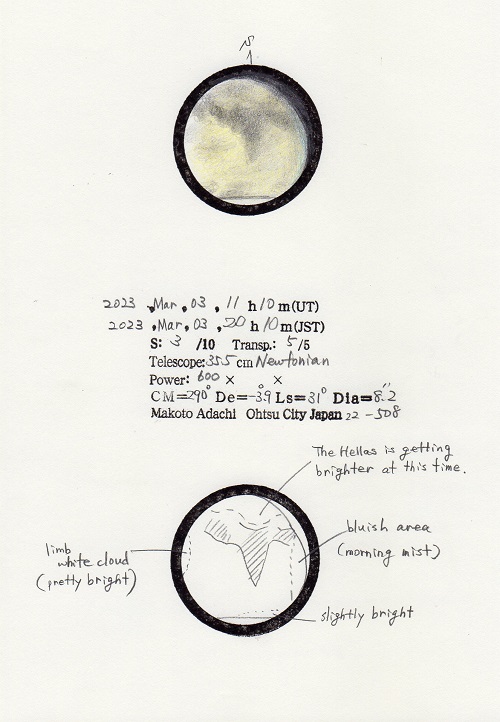 S
2023 ,Mar, 03 , 11 h 10 m(UT)
2023 ,Mar, 03 , 20 h 10 m(JST)
S: 3 /10 Transp.: 5/5
Telescope:355 cm Newtonian
Power: 600 × ×
CM=290° De=-3.9 Ls=31° Dia=8.2"
Makoto Adachi Ohtsu City Japan 22-508
The Hellas is getting
brighter at this time.
bluish area
(morning mist)
limb
white cloud
(pretty bright)
slightly bright